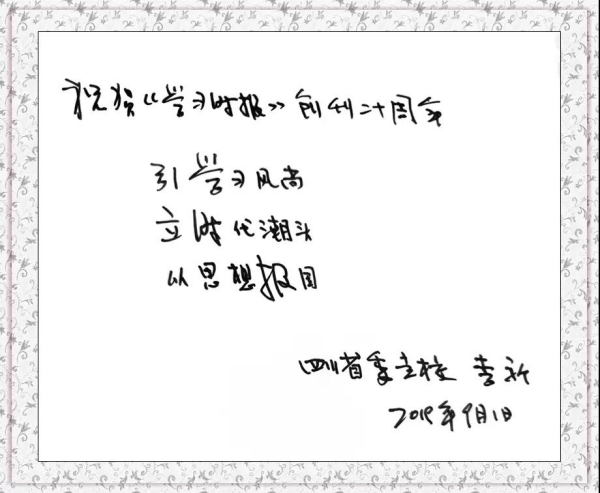 祝贺《学习时报》创刊二十周年
引学习风尚
立时代潮头
以思想报国
四川省委党校 李新
2019年9月1日